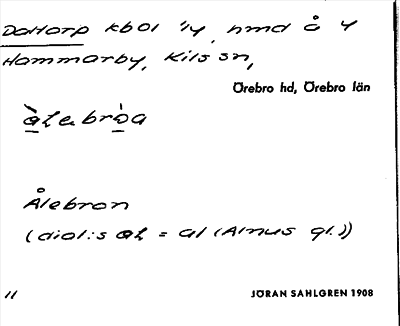 Dattorp kbol 1/4, hmd å 4
Hammarby, Kils sn,
Örebro hd, Örebro län
àlebròa
Ålebron
(dial:s al = al (Alnus gl.))
11
JÖRAN SAHLGREN 1908